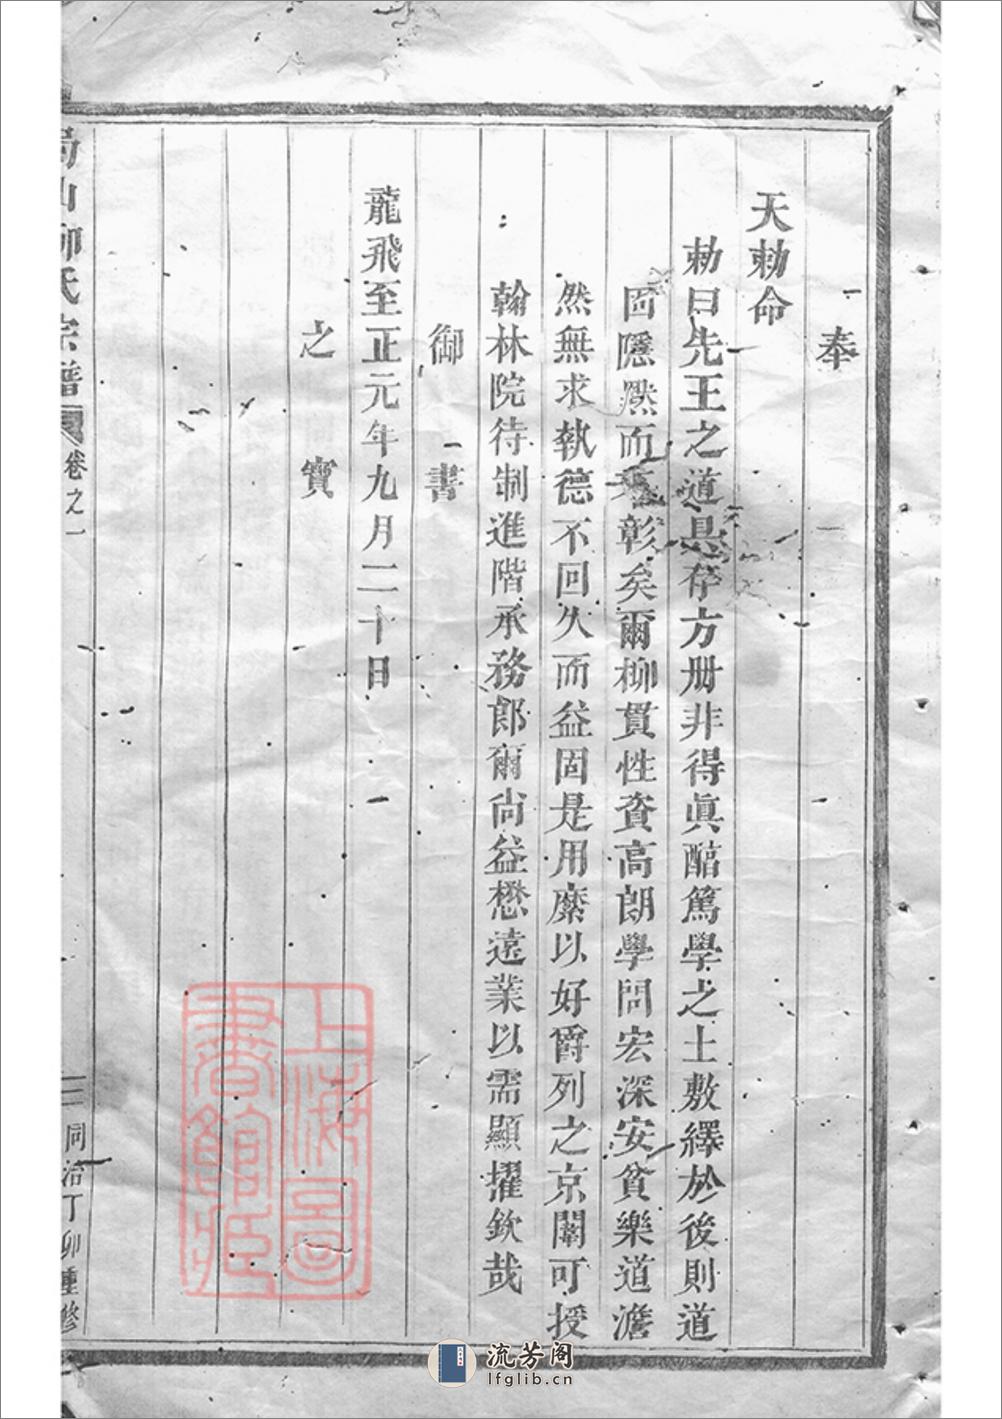 奉
天勅命
勅曰先王之道具存方册非得眞醇篤學之士敷繹於後則道
固隱然而彰矣爾柳貫性資高朗學問宏深安貧樂道澹
然無求執德不回久而益固是用縻以好爵列之京闈可授
翰林院待制進階承務郎爾尚益懋遠業以需顯擢欽哉
御書
龍飛至正元年九月二十日
之寶
山柳氏宗譜 卷之一
三 同治丁卯重修
上海圖書館藏
流芳阁
lfglib.cn